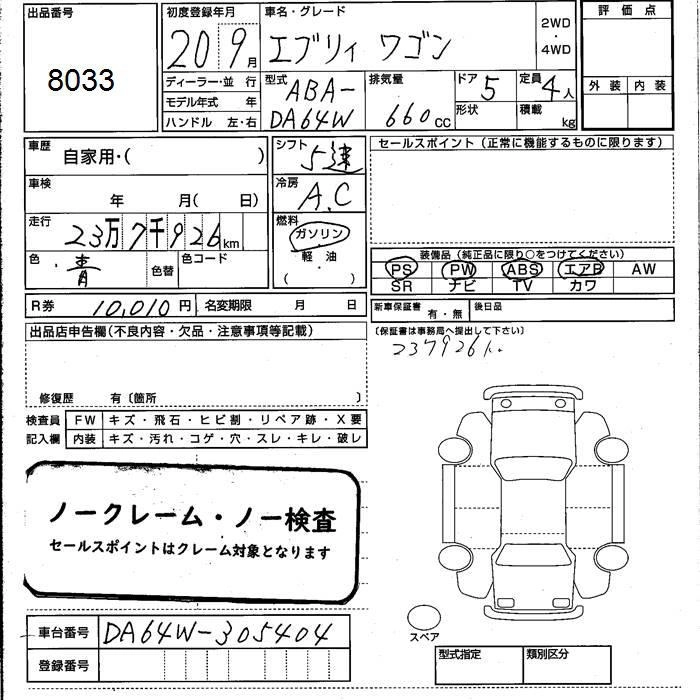 出品番号
8033
初度登録年月
20 9月
車名・グレード
エブリィ ワゴン
2WD
・
4WD
評価点
外装 内装
ディーラー・並 行
モデル年式 年
ハンドル 左・右
型式
ABA-
DA64W
排気量
660cc
ドア 5
形状
定員 4人
積載 kg
車歴
自家用・( )
シフト 5速
セールスポイント（正常に機能するものに限ります）
車検
年 月( 日)
冷房 A.C
走行
23万7千926km
燃料
ガソリン
軽油
( )
色 青 色替 色コード
装備品（純正品に限り○をつけてください）
PS PW ABS エアB AW
SR ナビ TV カワ
R券 10,010円 名変期限 月 日
新車保証書 有・無 後日品
（保証書は事務局へ提出して下さい）
237926k
出品店申告欄（不良内容・欠品・注意事項等記載）
修復歴 有〔箇所 〕
検査員 FW キズ・飛石・ヒビ割・リペア跡・X要
記入欄 内装 キズ・汚れ・コゲ・穴・スレ・キレ・破レ
ノークレーム・ノー検査
セールスポイントはクレーム対象となります
車台番号 DA64W-305404
登録番号
スペア
型式指定 類別区分